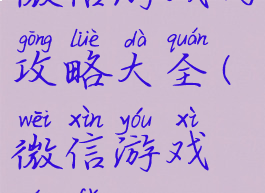 gōng lüè dà quán
攻略大全(
wēi xìn yóu xì
微信游戏